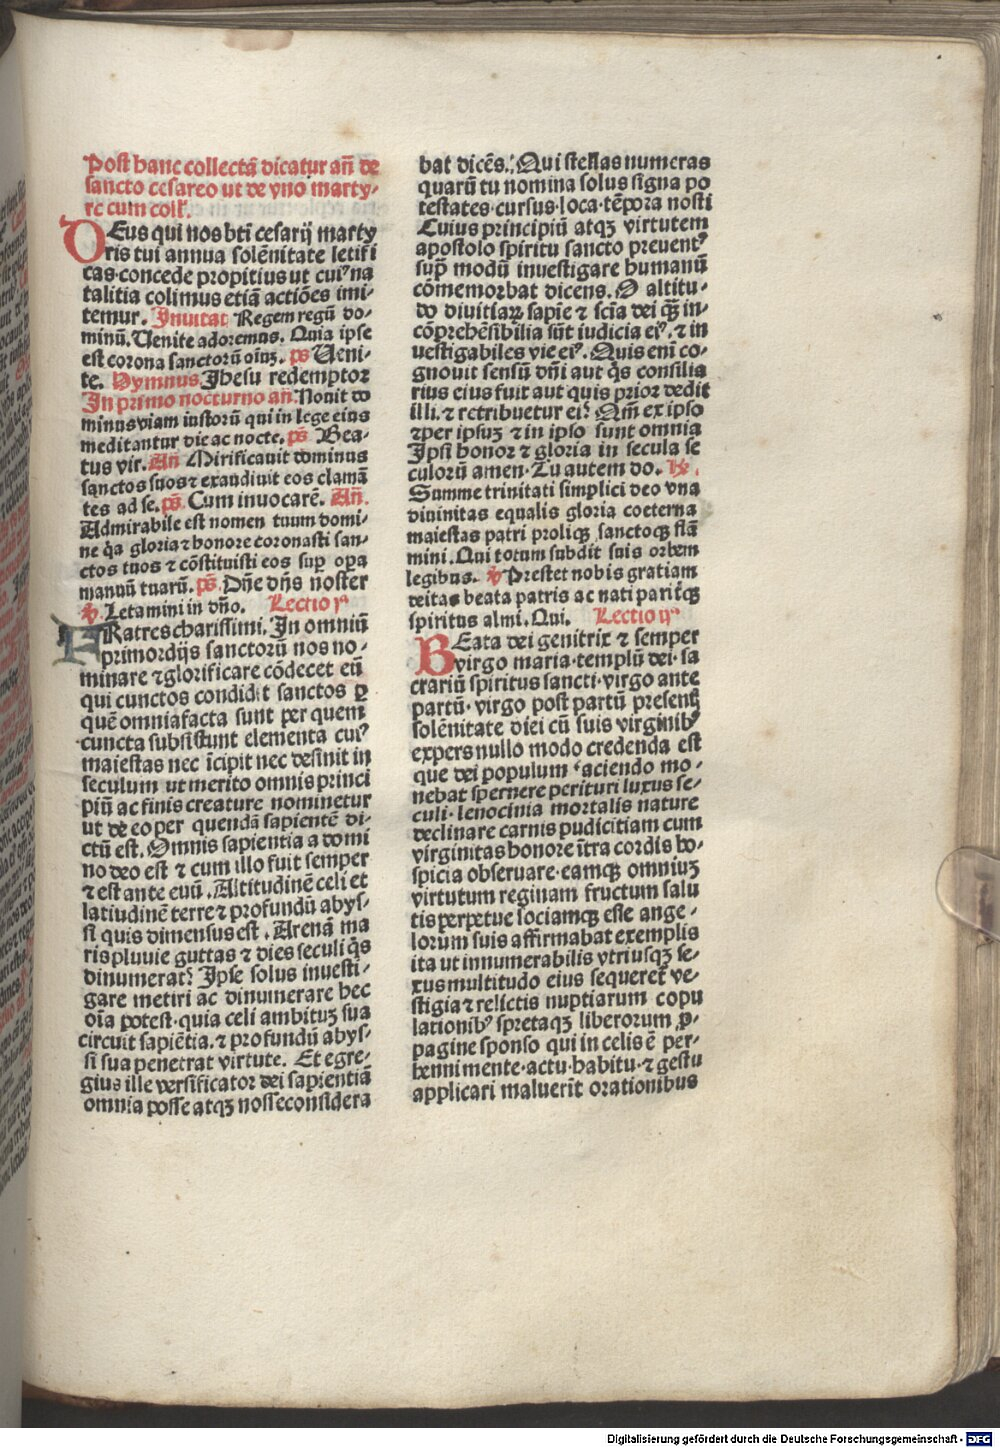 Post hanc collectā dicatur an̄ de
sancto cesareo ut de vno marty⸗
re cum coll'.
DEus qui nos bt̄i cesarij marty
ris tui annua solēnitate letifi
cas·concede propitius ut cuiꝰ na
talitia colimus etiā actiōes imi⸗
temur. Inuitat Regem regū do⸗
minū. Uenite adoremus. Quia ipse
est corona sanctorū oīuꝫ. ps̄ Ueni⸗
te. Hymnus Jhesu redemptor
In primo nocturno an̄. Nouit do
minus viam iustorū qui in lege eius
meditantur die ac nocte. ps̄ Bea⸗
tus vir. An̄ Mirificauit dominus
sanctos suos ⁊ exaudiuit eos clamā
tes ad se. ps̄ Cum inuocarē. An̄.
Admirabile est nomen tuum domi⸗
ne q̇a gloria ⁊ honore coronasti san⸗
ctos tuos ⁊ cōstituisti eos sup̄ oꝑa
manuū tuarū. ps̄. Dn̄e dn̄s noster
℣. Letamini in dn̄o. Lectio jᵃ
FRatres charissimi. In omniū
primordijs sanctorū nos no⸗
minare ⁊ glorificare cōdecet eū
qui cunctos condidit sanctos ꝑ
quē omnia facta sunt per quem
cuncta subsistunt elementa cuiꝰ
maiestas nec īcipit nec desinit in
seculum ut merito omnis princi
piū ac finis creature nominetur
ut de eo per quendā sapientē di⸗
ctū est. Omnis sapientia a domi
no deo est ⁊ cum illo fuit semper
⁊ est ante euū. Altitudinē celi et
latiudinē terre ⁊ profundū abys⸗
si quis dimensus est. Arenā ma
ris pluuie guttas ⁊ dies seculi q̇s
dinumerat? Ipse solus inuesti⸗
gare metiri ac dinumerare hec
oīa potest·quia celi ambituꝫ sua
circuit sapiētia. ⁊ profundū abys⸗
si sua penetrat virtute. Et egre⸗
gius ille versificator dei sapientiā
omnia posse atqꝫ nosse considera
bat dicēs. Qui stellas numeras
quarū tu nomina solus signa po
testates·cursus·loca·tēpora nosti
Cuius principiū atqꝫ virtutem
apostolo spiritu sancto preuentꝰ
sup̄ modū inuestigare humanū
cōmemorbat dicens. O altitu⸗
do diuitiaꝝ sapie ⁊ scīa dei qꝫ in⸗
cōprehēsibilia sūt iudicia eiꝰ. ⁊ in
uestigabiles vie eiꝰ. Quis eni co⸗
gnouit sensū dn̄i aut q̇s consilia
rius eius fuit aut quis prior dedit
illi. ⁊ retribuetur ei? Qm̄ ex ipso
⁊ per ipsuꝫ ⁊ in ipso sunt omnia
Ipsi honor ⁊ gloria in secula se
culorū amen·Tu autem do. ℟.
Summe trinitati simplici deo vna
diuinitas equalis gloria coeterna
maiestas patri proliqꝫ sanctoqꝫ flā
mini. Qui totum subdit suis orbem
legibus. ℣ Prestet nobis gratiam
deitas beata patris ac nati paritqꝫ
spiritus almi. Qui. Lectio ijᵃ
BEata dei genitrix ⁊ semper
virgo maria·templū dei·sa
crariū spiritus sancti·virgo ante
partū·virgo post partū presenti
solēnitate diei cū suis virginibꝰ
expers nullo modo credenda est
que dei populum faciendo mo⸗
nebat spernere perituri luxus se⸗
culi·lenocinia mortalis nature
declinare carnis pudicitiam cum
virginitas honore ītra cordis ho⸗
spicia obseruare·eamqꝫ omniuꝫ
virtutum reginam fructum salu
tis perpetue sociamqꝫ esse ange⸗
lorum suis affirmabat exemplis
ita ut innumerabilis vtriusqꝫ se⸗
xus multitudo eius sequeret̄ ve⸗
stigia ⁊ relictis nuptiarum copu
lationibꝰ spretaqꝫ liberorum ꝓ⸗
pagine sponso qui in celis ē per⸗
henni mente·actu·habitu·⁊ gestu
applicari maluerit orationibus
Digitalisierung gefördert durch die Deutsche Forschungsgemeinschaft - DFG